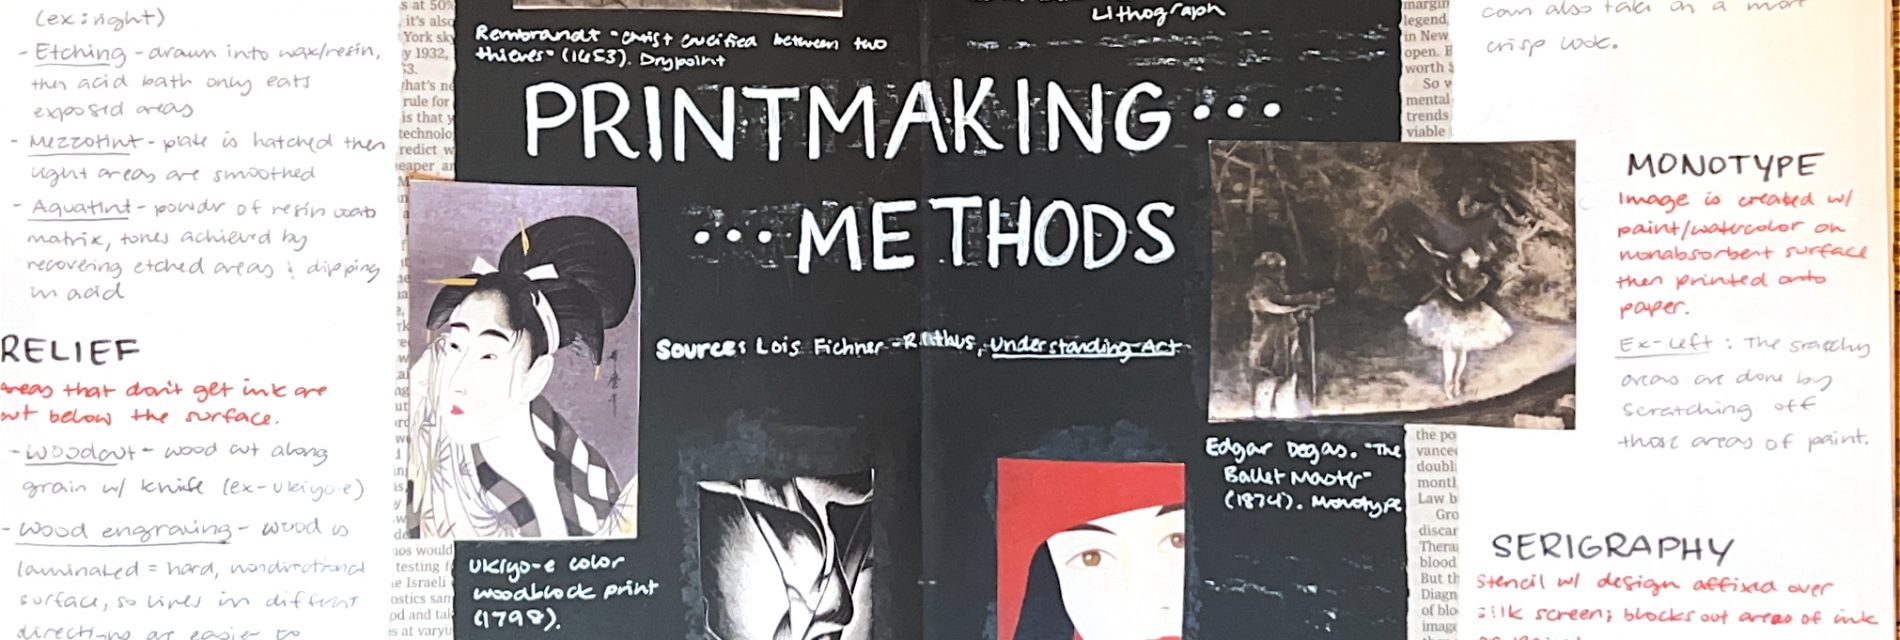 (ex: right)
- Etching - drawn into wax/resin,
then acid bath only eats
exposed areas
- Mezzotint - plate is hatched then
light areas are smoothed
- Aquatint - powder of resin coats
matrix, tones achieved by
recovering etched areas & dipping
in acid
RELIEF
areas that don't get ink are
cut below the surface.
- Woodcut - wood cut along
grain w/ knife (ex - ukiyo-e)
- Wood engraving - wood is
laminated = hard, nondirectional
surface, so lines in different
directions are easier to
s at 50%
it's also
York sky
y 1932,
3.
hat's ne
rule for
is that y
technolo
redict w
eaper an
os would
testing
e Israeli
ostics sam
od and tak
s at varyu
Rembrandt "Christ crucified between two
thieves" (1653). Drypoint
Lithograph
PRINTMAKING...
...METHODS
Source: Lois Fichner-Rathus, Understanding Art
Ukiyo-e color
woodblock print
(1798).
Edgar Degas. "The
Ballet Master"
(1874). Monotype
margin
legend,
in New
open. E
worth $
So v
mental
trends
viable
the po
vance
doubl
mont
Law b
Gro
discar
Thera
blood
But th
Diagn
of blo
image
can also take on a more
crisp look.
MONOTYPE
Image is created w/
paint/watercolor on
nonabsorbent surface
then printed onto
paper.
Ex-left: The scratchy
areas are done by
scratching off
those areas of paint.
SERIGRAPHY
Stencil w/ design affixed over
silk screen; blocks out areas of ink